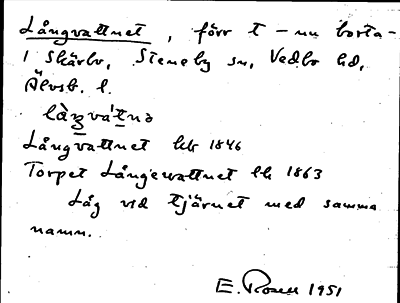 Långvattnet, förr t – nu borta –
i Skärbo, Steneby sn, Vedbo hd,
Älvsb. l.
làŋvátnə
Långvattnet hfk 1846
Torpet Långevattnet lk 1863
Låg vid tjärnet med samma
namn.
E. Rosell 1951